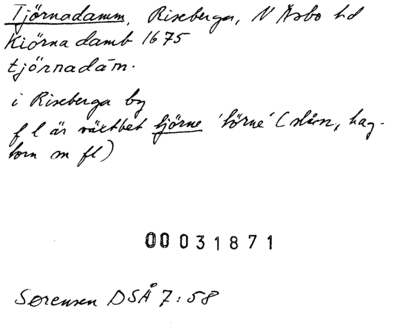 Tjörnadamm, Riseberga, N Åsbo hd
Kiörna damb 1675
tjö̀rnadám.
i Riseberga by
f l är växtbet tjörne 'törne' (slån, hag-
torn m fl)
00 031871
Sørensen DSÅ 7:58